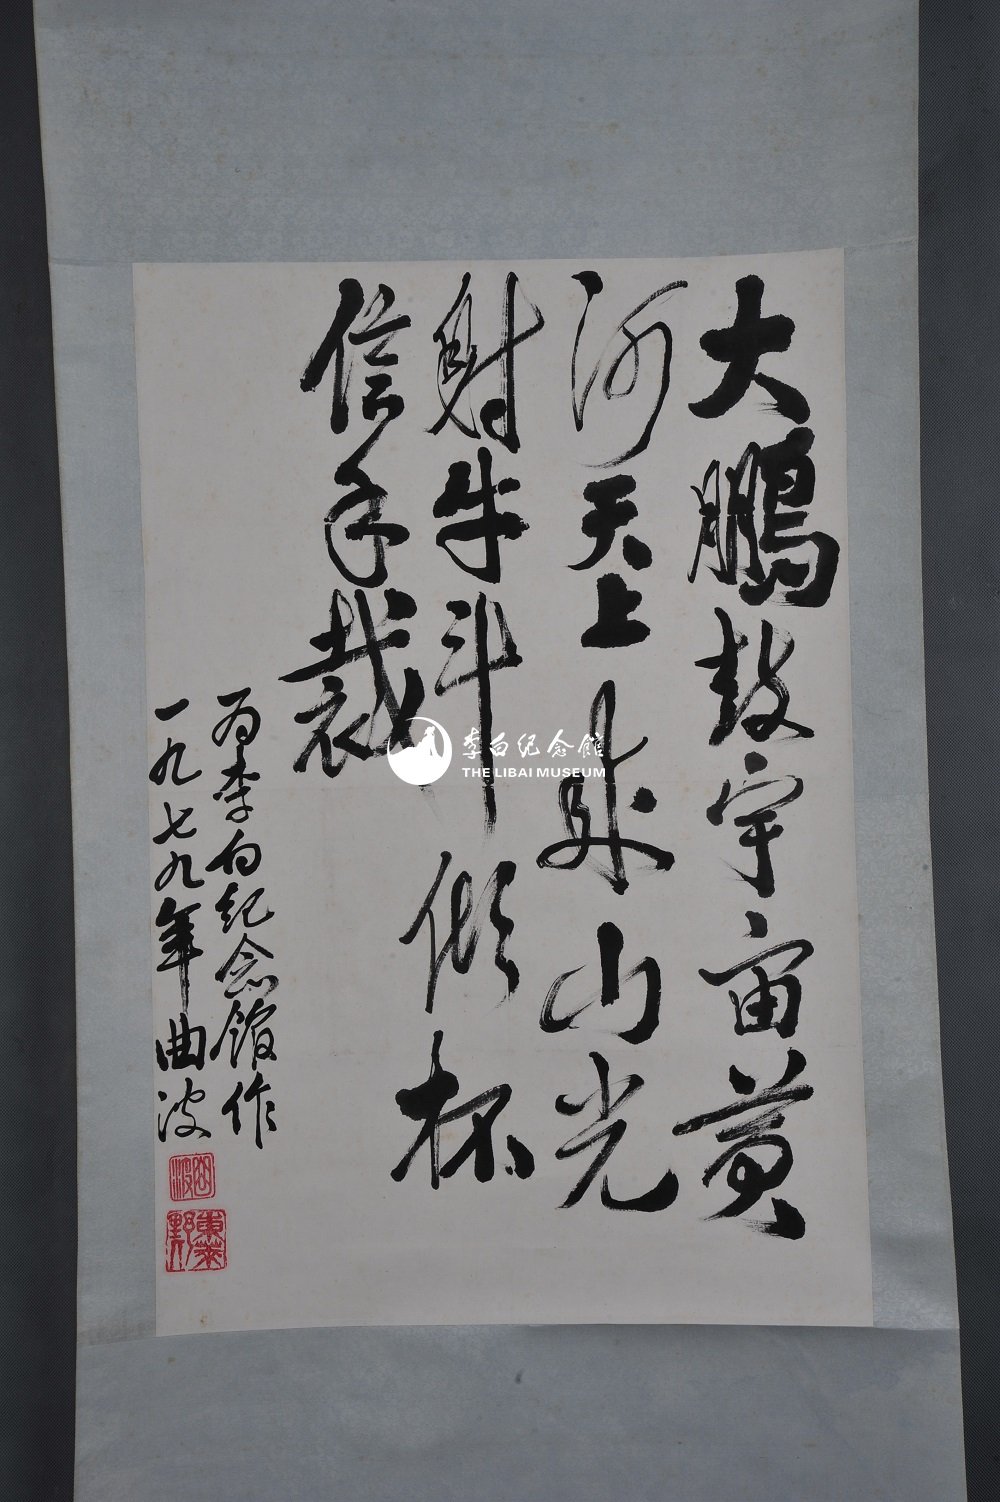 大鹏鼓宇宙黄
河天上来山光
射牛斗倾杯
信手裁
为李白纪念馆作
一九七九年曲波
曲波
东莱
李白纪念馆
THE LIBAI MUSEUM